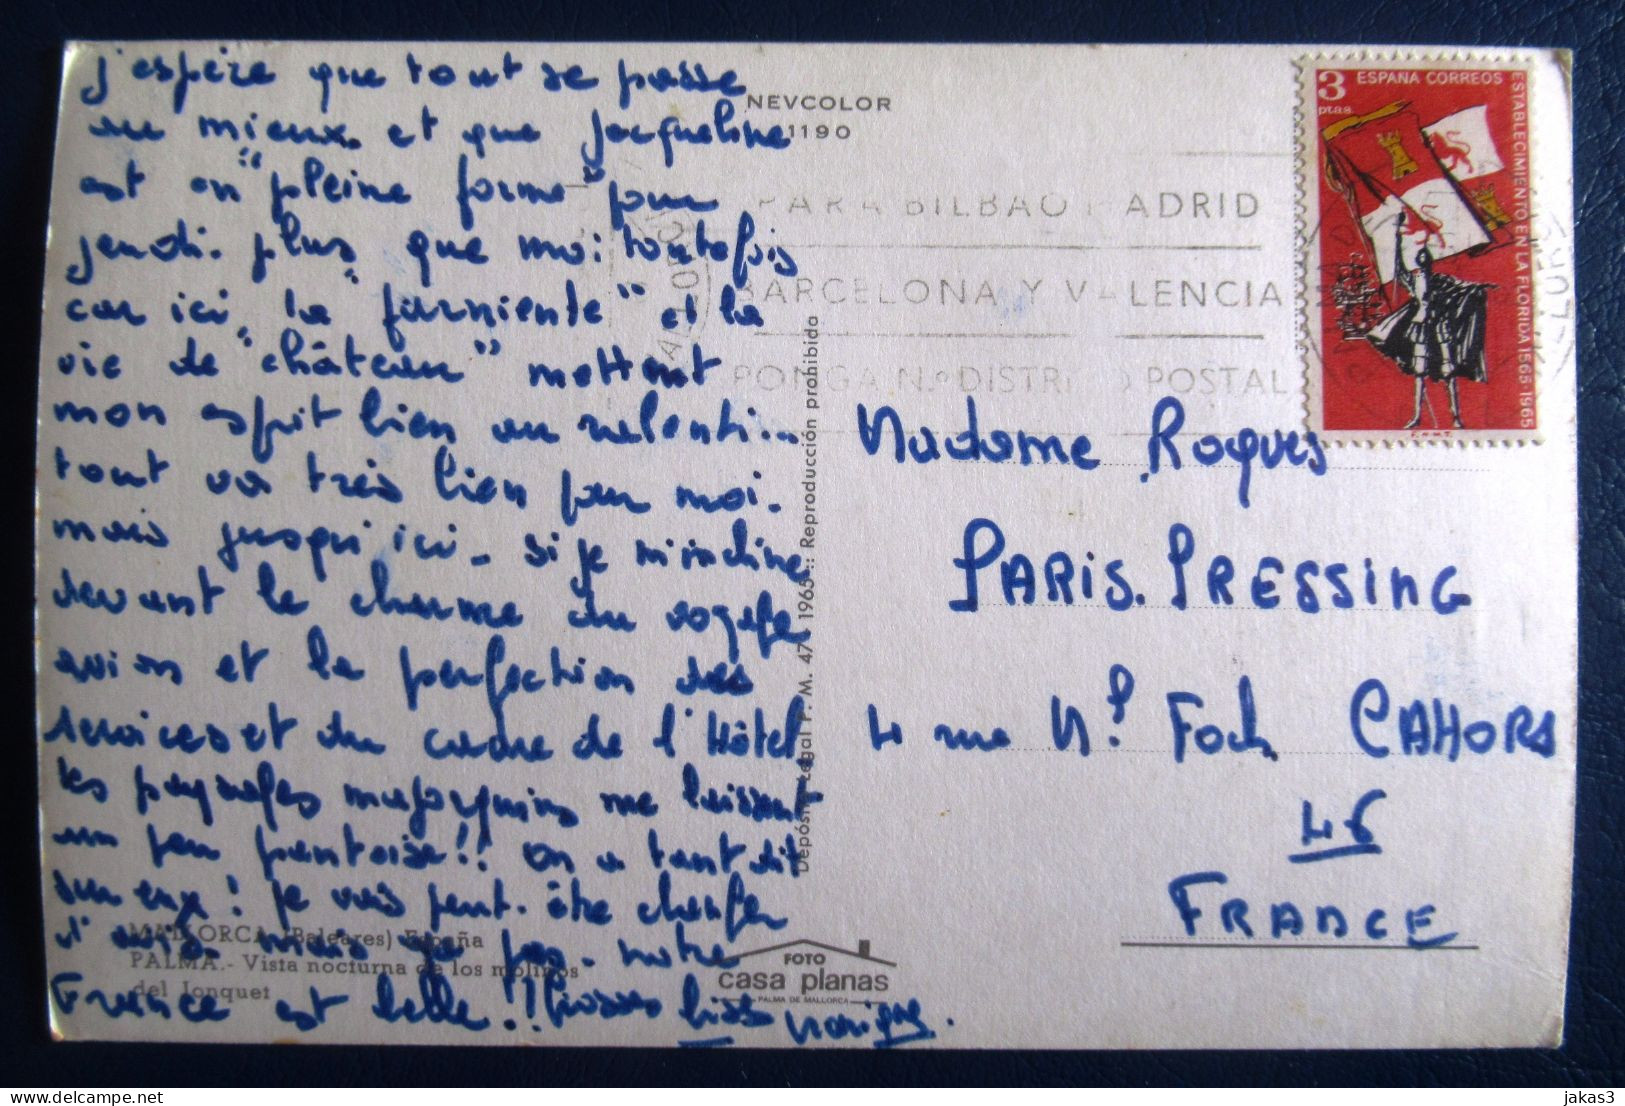 j'espère que tout se passe
au mieux. et que Jacqueline
est en "pleine forme" pour
jeudi. plus que moi toutefois
car ici la "farniente" et la
vie de "château" mettent
mon esprit bien au ralenti...
tout va très bien pour moi.
mais jusqu'ici - si je m'incline
devant le charme du voyage
avion et la perfection des
services et du cadre de l'Hôtel
les paysages majorquins me laissent
un peu pantoise!! on a tant dit
sur eux! je vais peut-être changer
d'avis mais
pas. notre
France est belle!! grosses bises
NEVCOLOR
1190
PARA BILBAO MADRID
BARCELONA Y VALENCIA
PONGA N.º DISTRITO POSTAL
MALLORCA
3 ptas.
ESPAÑA CORREOS
ESTABLECIMIENTO EN LA FLORIDA 1565-1965
F.N.M.T.
Madame Roques
PARIS. PRESSING
4 rue Mal Foch CAHORS
46
FRANCE
Depósito Legal P. M. 47 - 1965 :: Reproducción prohibida
MALLORCA (Baleares) España
PALMA.- Vista nocturna de los molinos
del Jonquet
FOTO
casa planas
PALMA DE MALLORCA
jakas3